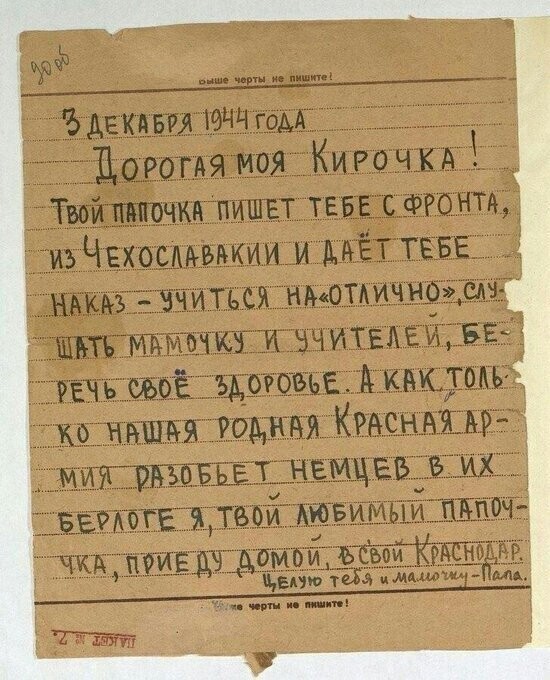 выше черты не пишите!
3 ДЕКАБРЯ 1944 ГОДА
ДОРОГАЯ МОЯ КИРОЧКА!
ТВОЙ ПАПОЧКА ПИШЕТ ТЕБЕ С ФРОНТА,
ИЗ ЧЕХОСЛАВАКИИ И ДАЁТ ТЕБЕ
НАКАЗ – УЧИТЬСЯ НА «ОТЛИЧНО», СЛУ-
ШАТЬ МАМОЧКУ И УЧИТЕЛЕЙ, БЕ-
РЕЧЬ СВОЁ ЗДОРОВЬЕ. А КАК ТОЛЬ-
КО НАШАЯ РОДНАЯ КРАСНАЯ АР-
МИЯ РАЗОБЬЕТ НЕМЦЕВ В ИХ
БЕРЛОГЕ Я, ТВОЙ ЛЮБИМЫЙ ПАПОЧ-
ЧКА, ПРИЕДУ ДОМОЙ, В СВОЙ КРАСНОДАР.
ЦЕЛУЮ тебя и мамочку – Папа.
Выше черты не пишите!
ПАКЕТ № 7.